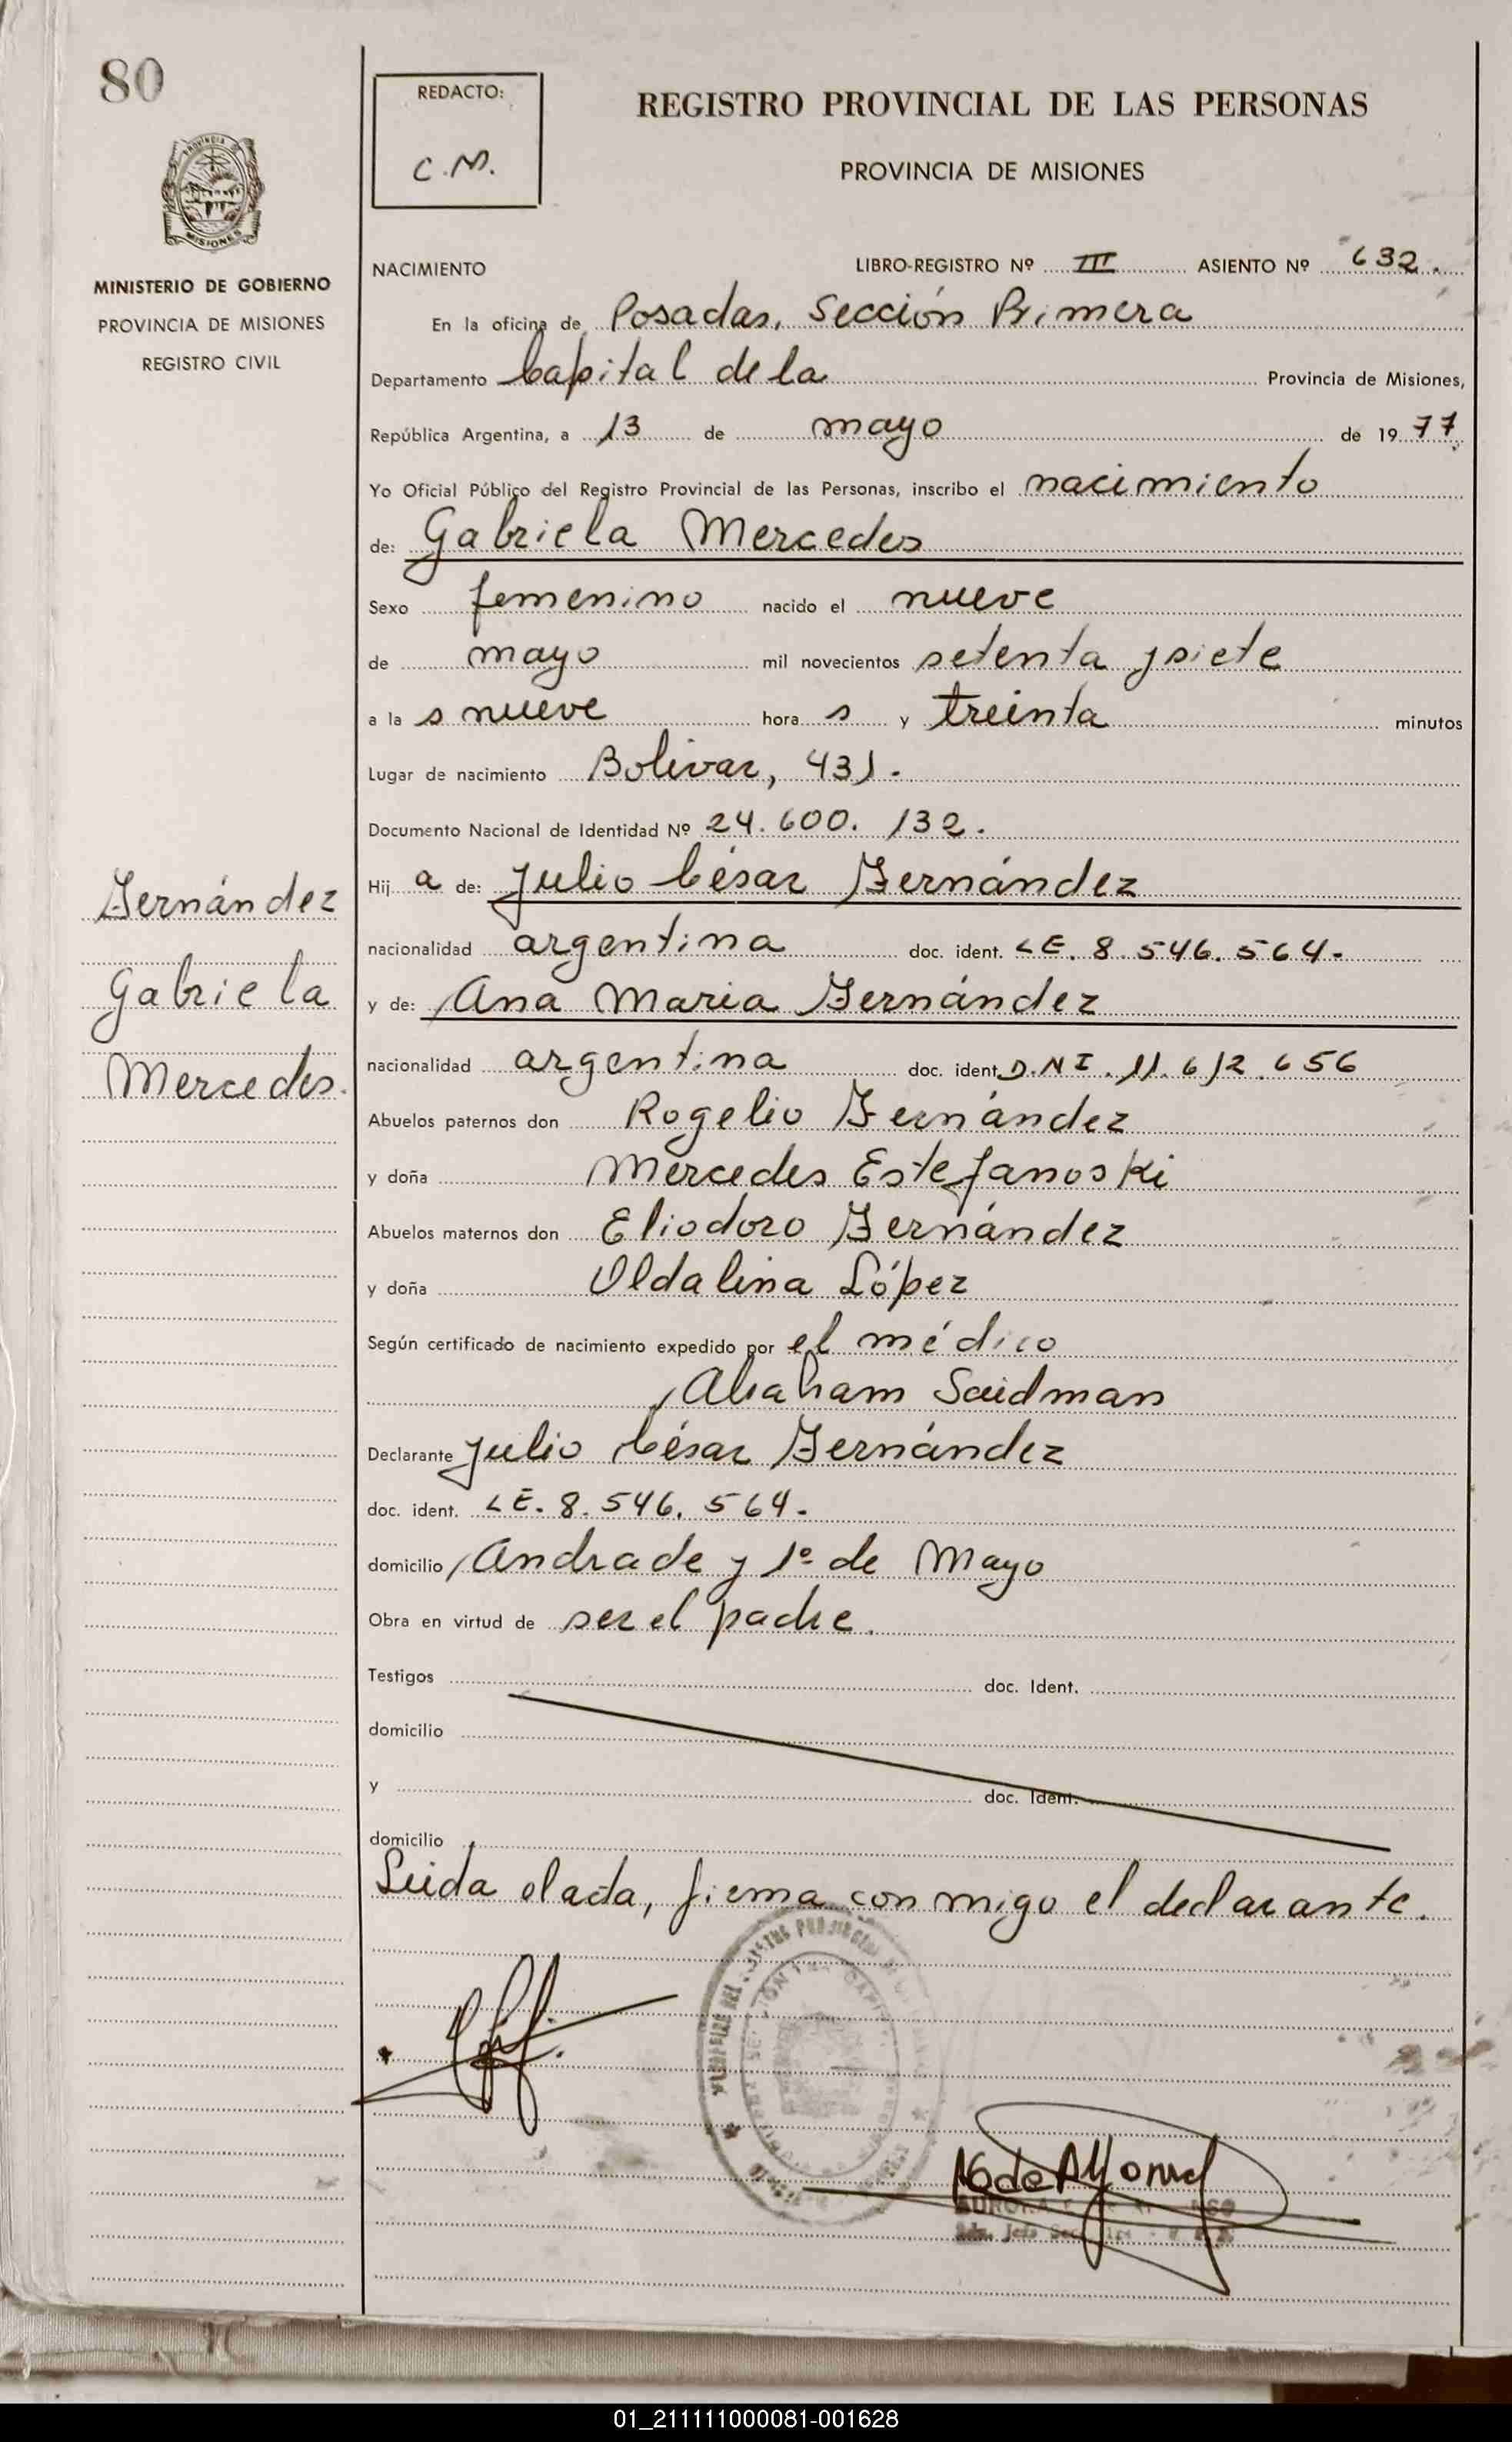 80
REDACTO:
C.M.
REGISTRO PROVINCIAL DE LAS PERSONAS
PROVINCIA DE MISIONES
MISIONES
MINISTERIO DE GOBIERNO
PROVINCIA DE MISIONES
REGISTRO CIVIL
NACIMIENTO LIBRO-REGISTRO Nº III ASIENTO Nº 632.
En la oficina de Posadas, Sección Primera
Departamento Capital de la Provincia de Misiones,
República Argentina, a 13 de mayo de 1977
Yo Oficial Público del Registro Provincial de las Personas, inscribo el nacimiento
de: Gabriela Mercedes
Sexo femenino nacido el nueve
de mayo mil novecientos setenta y siete
a la s nueve hora s y treinta minutos
Lugar de nacimiento Bolivar, 431.
Documento Nacional de Identidad Nº 24.600.132.
Hij a de: Julio César Fernández
nacionalidad argentina doc. ident. LE. 8.546.564.
y de: Ana Maria Fernández
nacionalidad argentina doc. ident. D.N.I. 11.612.656
Abuelos paternos don Rogelio Fernández
y doña Mercedes Estefanoski
Abuelos maternos don Eliodoro Fernández
y doña Oldalina López
Según certificado de nacimiento expedido por el médico
Abraham Saidman
Declarante Julio César Fernández
doc. ident. LE. 8.546.564.
domicilio Andrade y 1º de Mayo
Obra en virtud de ser el padre.
Testigos doc. Ident.
domicilio
y doc. Ident.
domicilio
Leida el acta, firma conmigo el declarante.
Fernández
Gabriela
Mercedes.
01_211111000081-001628